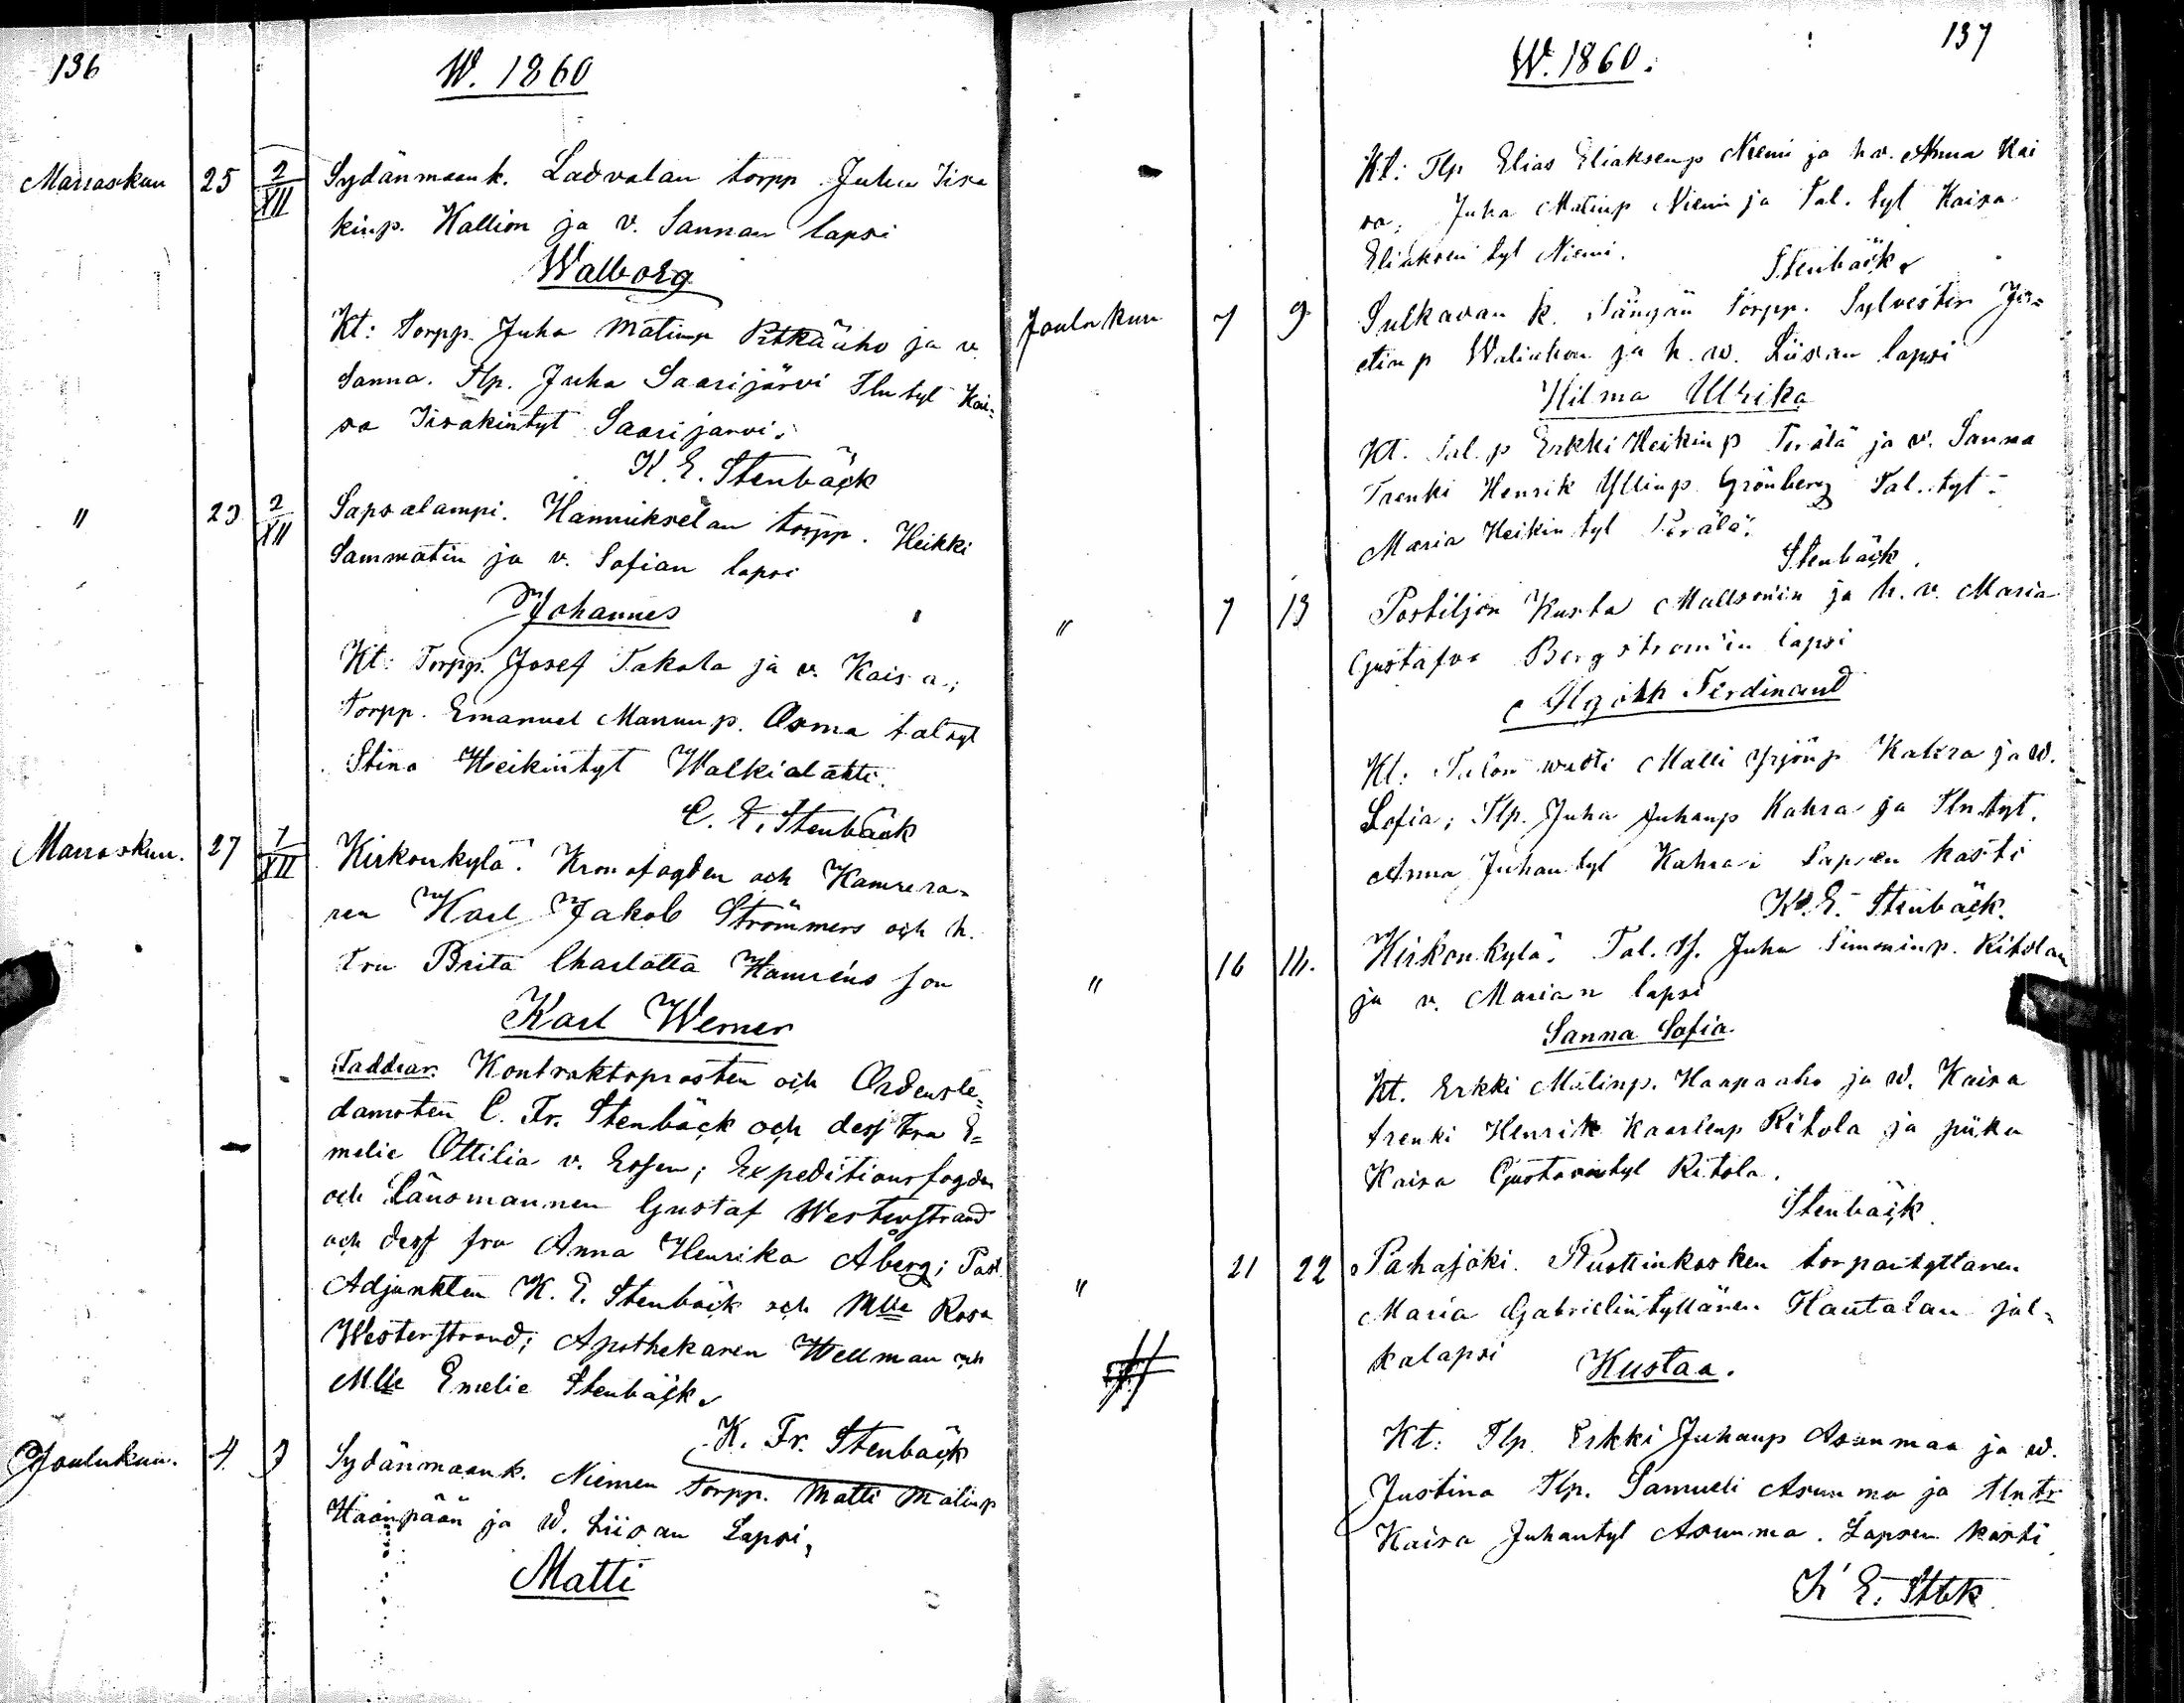 136
W. 1860
Marraskun 25 2/XII Sydänmaank. Ladvalan torpp Juha Iisa
kinp. Kallion ja v. Sannan lapsi
Walborg
Kt: Torpp. Juha Matinp Pitkäaho ja v.
Sanna. Tlp. Juha Saarijärvi Tln tyt Kai=
sa Iisakintyt Saarijarvi.
K. E. Stenbäck
" 23 2/XII Sapsalampi. Hannukselan torpp. Heikki
Sammatin ja v. Sofian lapsi
Johannes
Kt: Torpp. Josef Takala ja v. Kaisa;
Torpp. Emanuel Manunp. Asma tal tyt
Stina Heikintyt Walkialahti.
C. F. Stenbäck
Marraskun. 27 7/XII Kirkonkylä. Kronofogden och Kamrera=
ren Karl Jakob Strömmers och h.
Fru Brita Charlotta Hamrens son
Karl Werner
Faddrar. Kontraktsprosten och Ordensle=
damoten C. Fr. Stenbäck och dess Fru E=
melie Ottilia v. Essen; Expeditionsfogden
och Länsmannen Gustaf Westerstrand
och dess fru Anna Henrika Åberg; Past.
Adjunkten K. E. Stenbäck och Mlle Rosa
Westerstrand; Apothekaren Wellman och
Mlle Emelie Stenbäck.
K. Fr. Stenbäck
Joulukun. 4 9 Sydänmaank. Niemen Torpp. Matti Matinp
Haanpään ja W. Liisan Lapsi,
Matti
137
W. 1860.
Kt: Tlp Elias Eliaksenp Niemi ja h.v. Anna Kai
sa; Juha Matinp Niemi ja Tal. tyt Kaisa
Eliaksen tyt Niemi.
Stenbäck
Joulukun 7 9 Sulkavan k. Sängän Torpp. Sylvester Jus=
etinp Waliahon ja h. w. Liisan lapsi
Hilma Ulrika
Kt. Tal. p Erkki Heikinp Perälä ja v. Sanna
Trenki Henrik Yllinp Grönberg Tal. tyt
Maria Heikin tyt Perälä.
Stenbäck.
" 7 13 Postiljon Kusta Mattsonin ja h. v. Maria
Gustafva Bergstrom'in lapsi
Algoth Ferdinand
Kt: Talon wasti Matti Yrjönp Kahra ja W.
Sofia; Tlp. Juha Juhanp Kahra ja Tln tyt.
Anna Juhan tyt Kahra; Lapsen kasti
K. E. Stenbäck.
" 16 16. Kirkonkylä. Tal. Juha Simoninp. Ritolan
ja v. Marian lapsi
Sanna Sofia.
Kt. Erkki Matinp. Haapaaho ja W. Kaisa
trenki Henrik Kaarlenp Ritola ja piika
Kaisa Gustavintyt Ritola.
Stenbäck
" 21 22 Pahajoki. Ruottinkosken torparityttären
Maria Gabrielintyttären Hautalan jal=
kalapsi Kustaa.
Kt: Tlp. Erkki Juhanp Asunmaa ja w.
Justina Tlp. Samueli Asunma ja tlntr
Kaisa Juhantyt Asunma. Lapsen kasti
K E. Stbk.